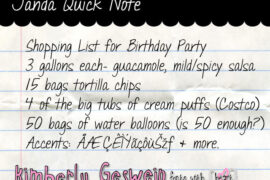 Janda Quick Note
Shopping List for Birthday Party
3 gallons each- guacamole, mild/spicy salsa
15 bags tortilla chips
4 of the big tubs of cream puffs (Costco)
50 bags of water balloons (is 50 enough?)
Accents: ÃÆÇÉÎŸäçõùŠžƒ + more.
Kimberly Geswein